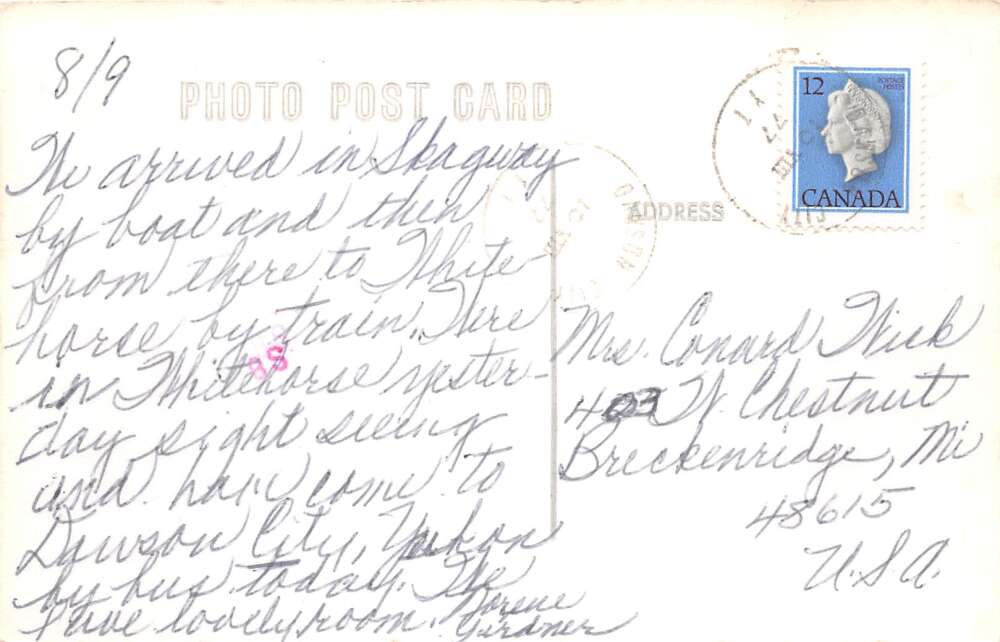 8/9
PHOTO POST CARD
We arrived in Skagway
by boat and then
from there to White-
horse by train. Were
in Whitehorse yester-
day sight seeing
and have come to
Dawson City, Yukon
by bus today. We
have lovely room. Norene
Girdner
12
POSTAGE
POSTES
CANADA
ADDRESS
DAWSON
CITY
Mrs. Conard Wick
403 W. Chestnut
Breckenridge, Mi
48615
U.S.A.